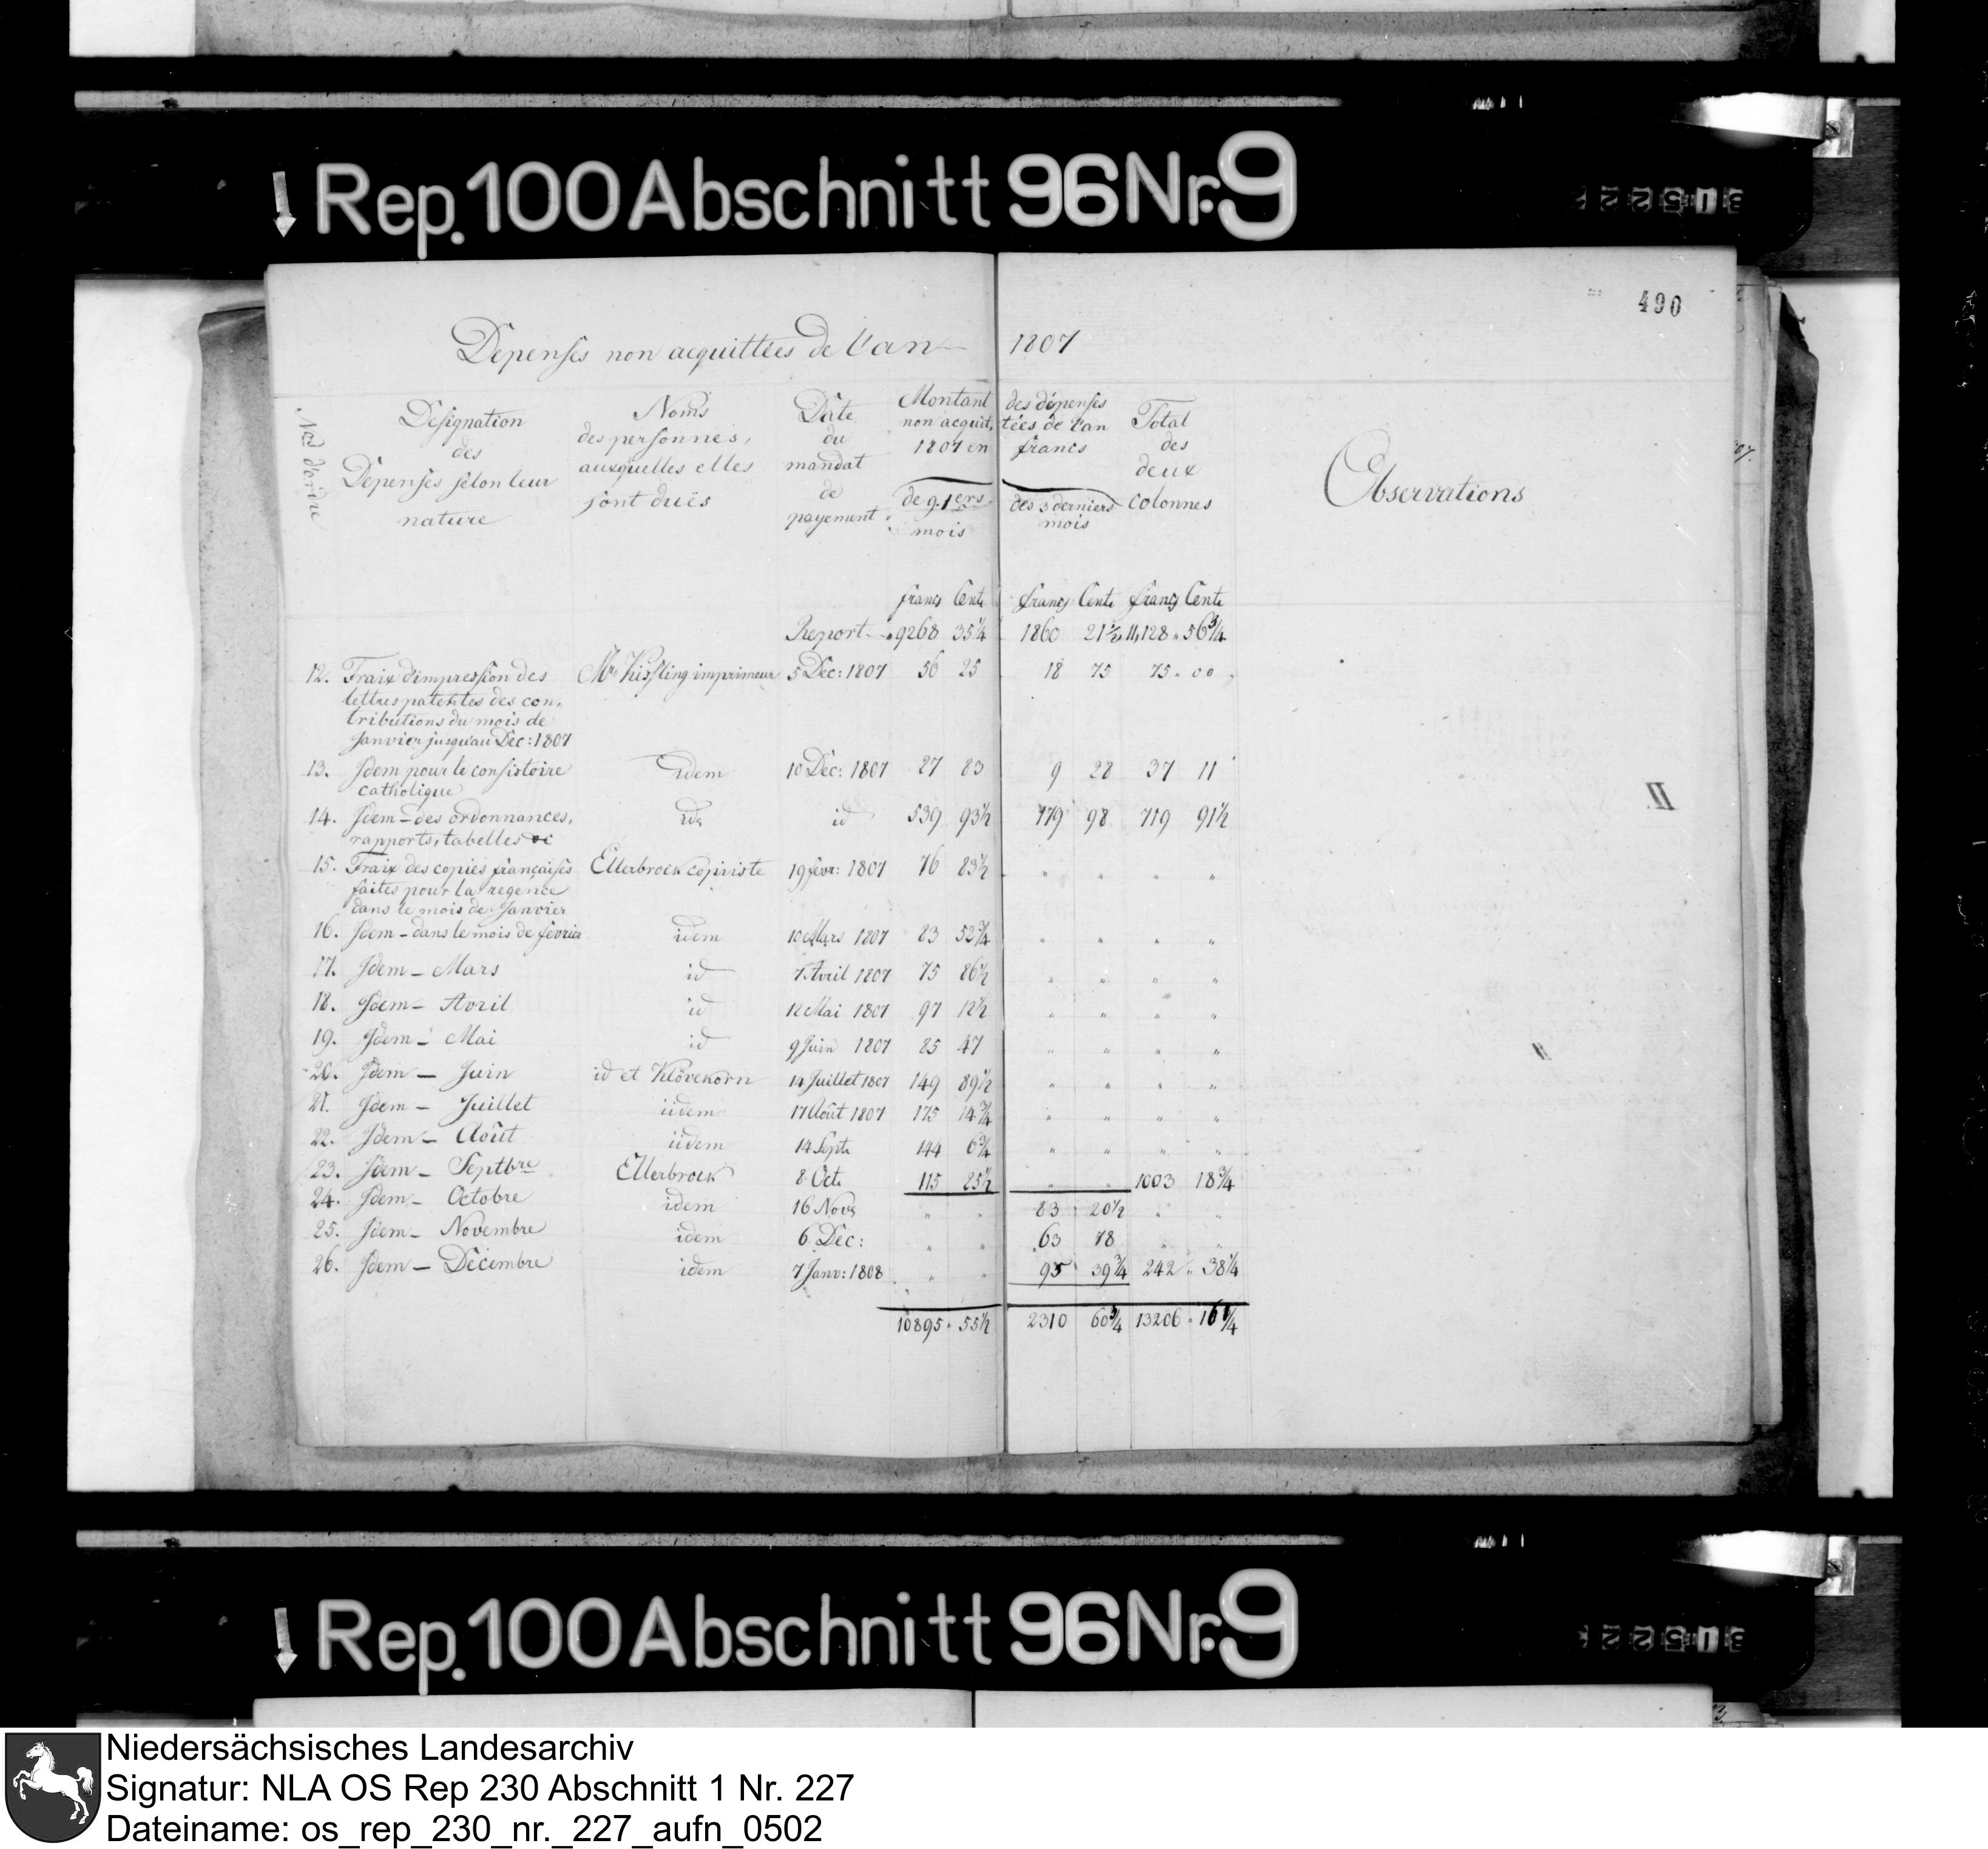 Rep. 100 Abschnitt 96 Nr. 9
490
Depenses non acquittées de l'an 1807
Nos d'ordre
Désignation des Dépenses selon leur nature
Noms des personnes, auxquelles elles sont duës
Date du mandat de payement
Montant des dépenses non acquittées de l'an 1807 en francs
de 9. 1ers mois
des 3 derniers mois
Total des deux colonnes
Observations
francs Cents francs Cents francs Cents
Report 9268 35¼ 1860 21½ 11,128 56¾
12. Fraix d'impression des Mr. Kissling imprimeur 5 Déc: 1807 56 25 18 75 75 00
lettres patentes des con,
tributions du mois de
Janvier jusqu'au Déc: 1807
13. Idem pour le consistoire idem 10 Déc: 1807 27 83 9 28 37 11
catholique
14. Idem - des ordonnances, id id 539 93½ 179 98 719 91½
rapports, tabelles &c
15. Fraix des copies françaises Ellerbrock copiiste 19 fevr: 1807 76 83½ " " " "
faites pour la regence
dans le mois de Janvier
16. Idem - dans le mois de février idem 10 Mars 1807 83 52¾ " " " "
17. Idem - Mars id 7 Avril 1807 75 86½ " " " "
18. Idem - Avril id 12 Mai 1807 97 12½ " " " "
19. Idem - Mai id 9 Juin 1807 85 47 " " " "
20. Idem - Juin id et Klövekorn 14 Juillet 1807 149 89½ " " " "
21. Idem - Juillet iidem 17 Août 1807 175 14¾ " " " "
22. Idem - Août iidem 14 Sept. 144 6¾ " " " "
23. Idem - Septbre Ellerbrock 8 Oct. 115 25½ " " 1003 18¾
24. Idem - Octobre idem 16 Nov. " " 83 20½ " "
25. Idem - Novembre idem 6 Déc: " " 63 78 " "
26. Idem - Décembre idem 7 Janv: 1808 " " 95 39¾ 242 38¼
10895 55½ 2310 60¾ 13206 16¼
Rep. 100 Abschnitt 96 Nr. 9
Niedersächsisches Landesarchiv
Signatur: NLA OS Rep 230 Abschnitt 1 Nr. 227
Dateiname: os_rep_230_nr._227_aufn_0502